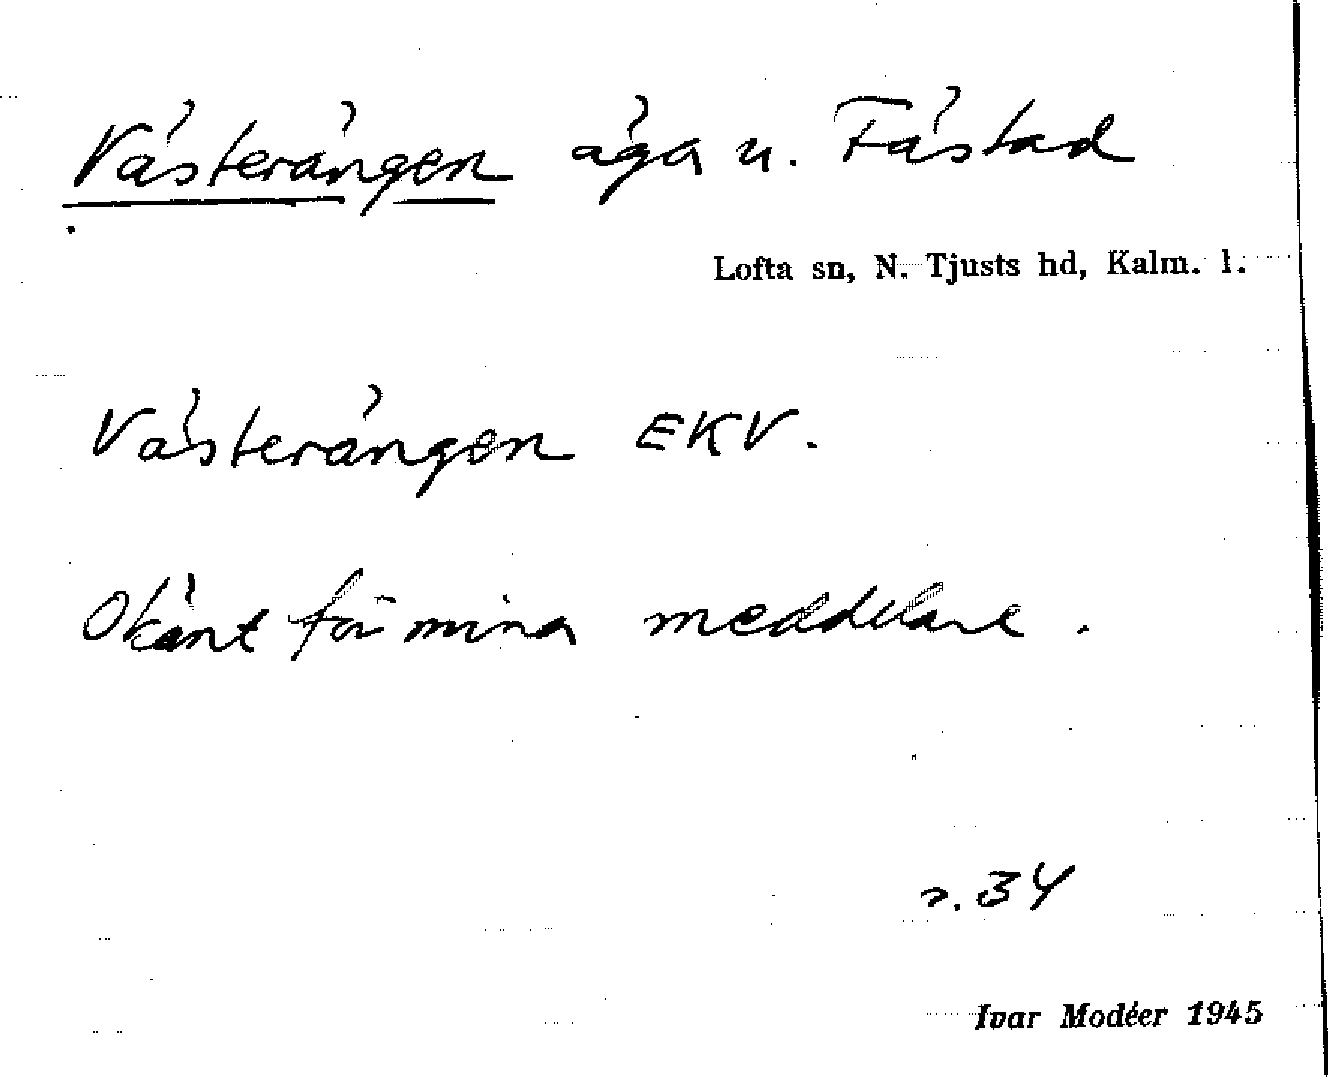 Västerängen äga u. Fästad
Lofta sn, N. Tjusts hd, Kalm. l.
Västerängen EKV.
Okänt för mina meddelare.
s. 34
Ivar Modéer 1945